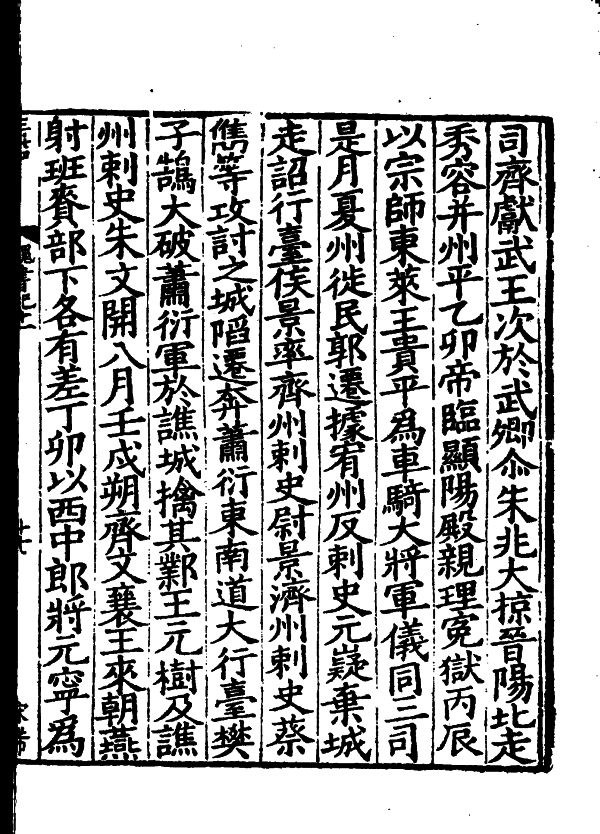 司齊獻武王次於武鄉尒朱兆大掠晉陽北走
秀容并州平乙卯帝臨顯陽殿親理寃獄丙辰
以宗師東萊王貴平爲車騎大將軍儀同三司
是月夏州徙民郭遷據宥州反刺史元嶷棄城
走詔行臺侯景率齊州刺史尉景濟州刺史蔡
儁等攻討之城陷遷奔蕭衍東南道大行臺樊
子鵠大破蕭衍軍於譙城擒其鄴王元樹及譙
州刺史朱文開八月壬戌朔齊文襄王來朝燕
射班賚部下各有差丁卯以西中郎將元寧爲